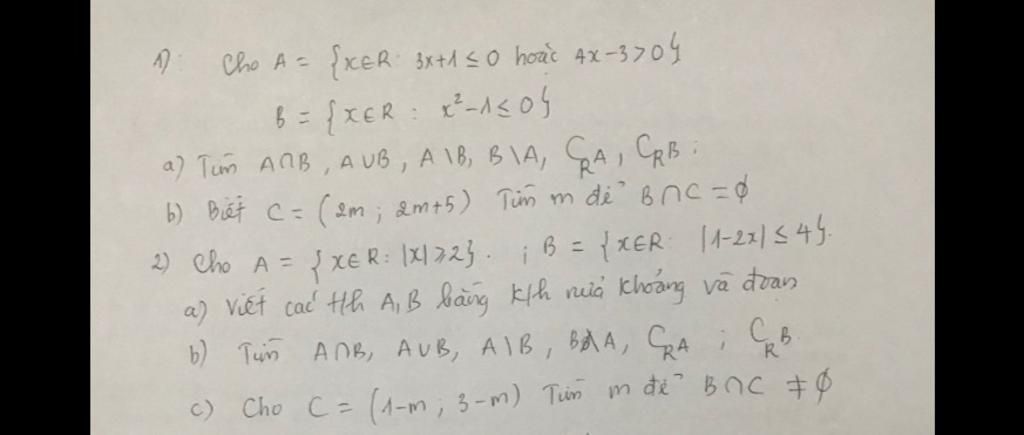 1): Cho A = {x∈R: 3x+1 ≤ 0 hoặc 4x-3>0}
B = {x∈R : x²-1≤0}
a) Tìm A∩B, A∪B, A\B, B\A, C_R A, C_R B ;
b) Biết C = (2m ; 2m+5) Tìm m để B∩C = ∅
2) Cho A = {x∈R: |x|≥2}. ; B = {x∈R: |1-2x| ≤ 4}.
a) Viết các t/h A, B bằng k/h nửa khoảng và đoạn
b) Tìm A∩B, A∪B, A\B, B\A, C_R A ; C_R B.
c) Cho C = (1-m ; 3-m) Tìm m để B∩C ≠ ∅